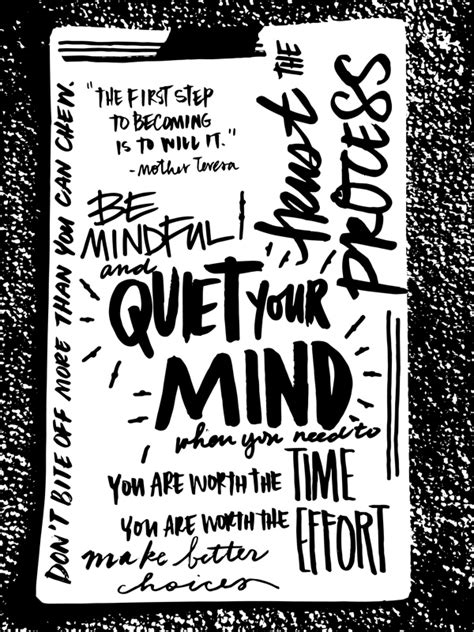 "THE FIRST STEP
TO BECOMING
IS TO WILL IT."
-Mother Teresa
trust THE
PROCESS
DON'T BITE OFF MORE THAN YOU CAN CHEW.
BE
MINDFUL
and
QUIET YOUR
MIND
when you need to
YOU ARE WORTH THE TIME
YOU ARE WORTH THE EFFORT
make better
choices